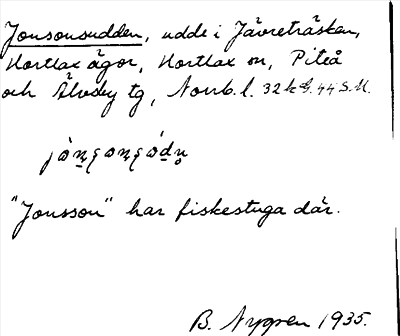 Jonsonsudden, udde i Jävreträsken,
Hortlax ägor, Hortlax sn, Piteå
och Älvsby tg, Norrb. l. 32 k
"Jonsson" har fiskestuga där.
B. Nygren 1935.